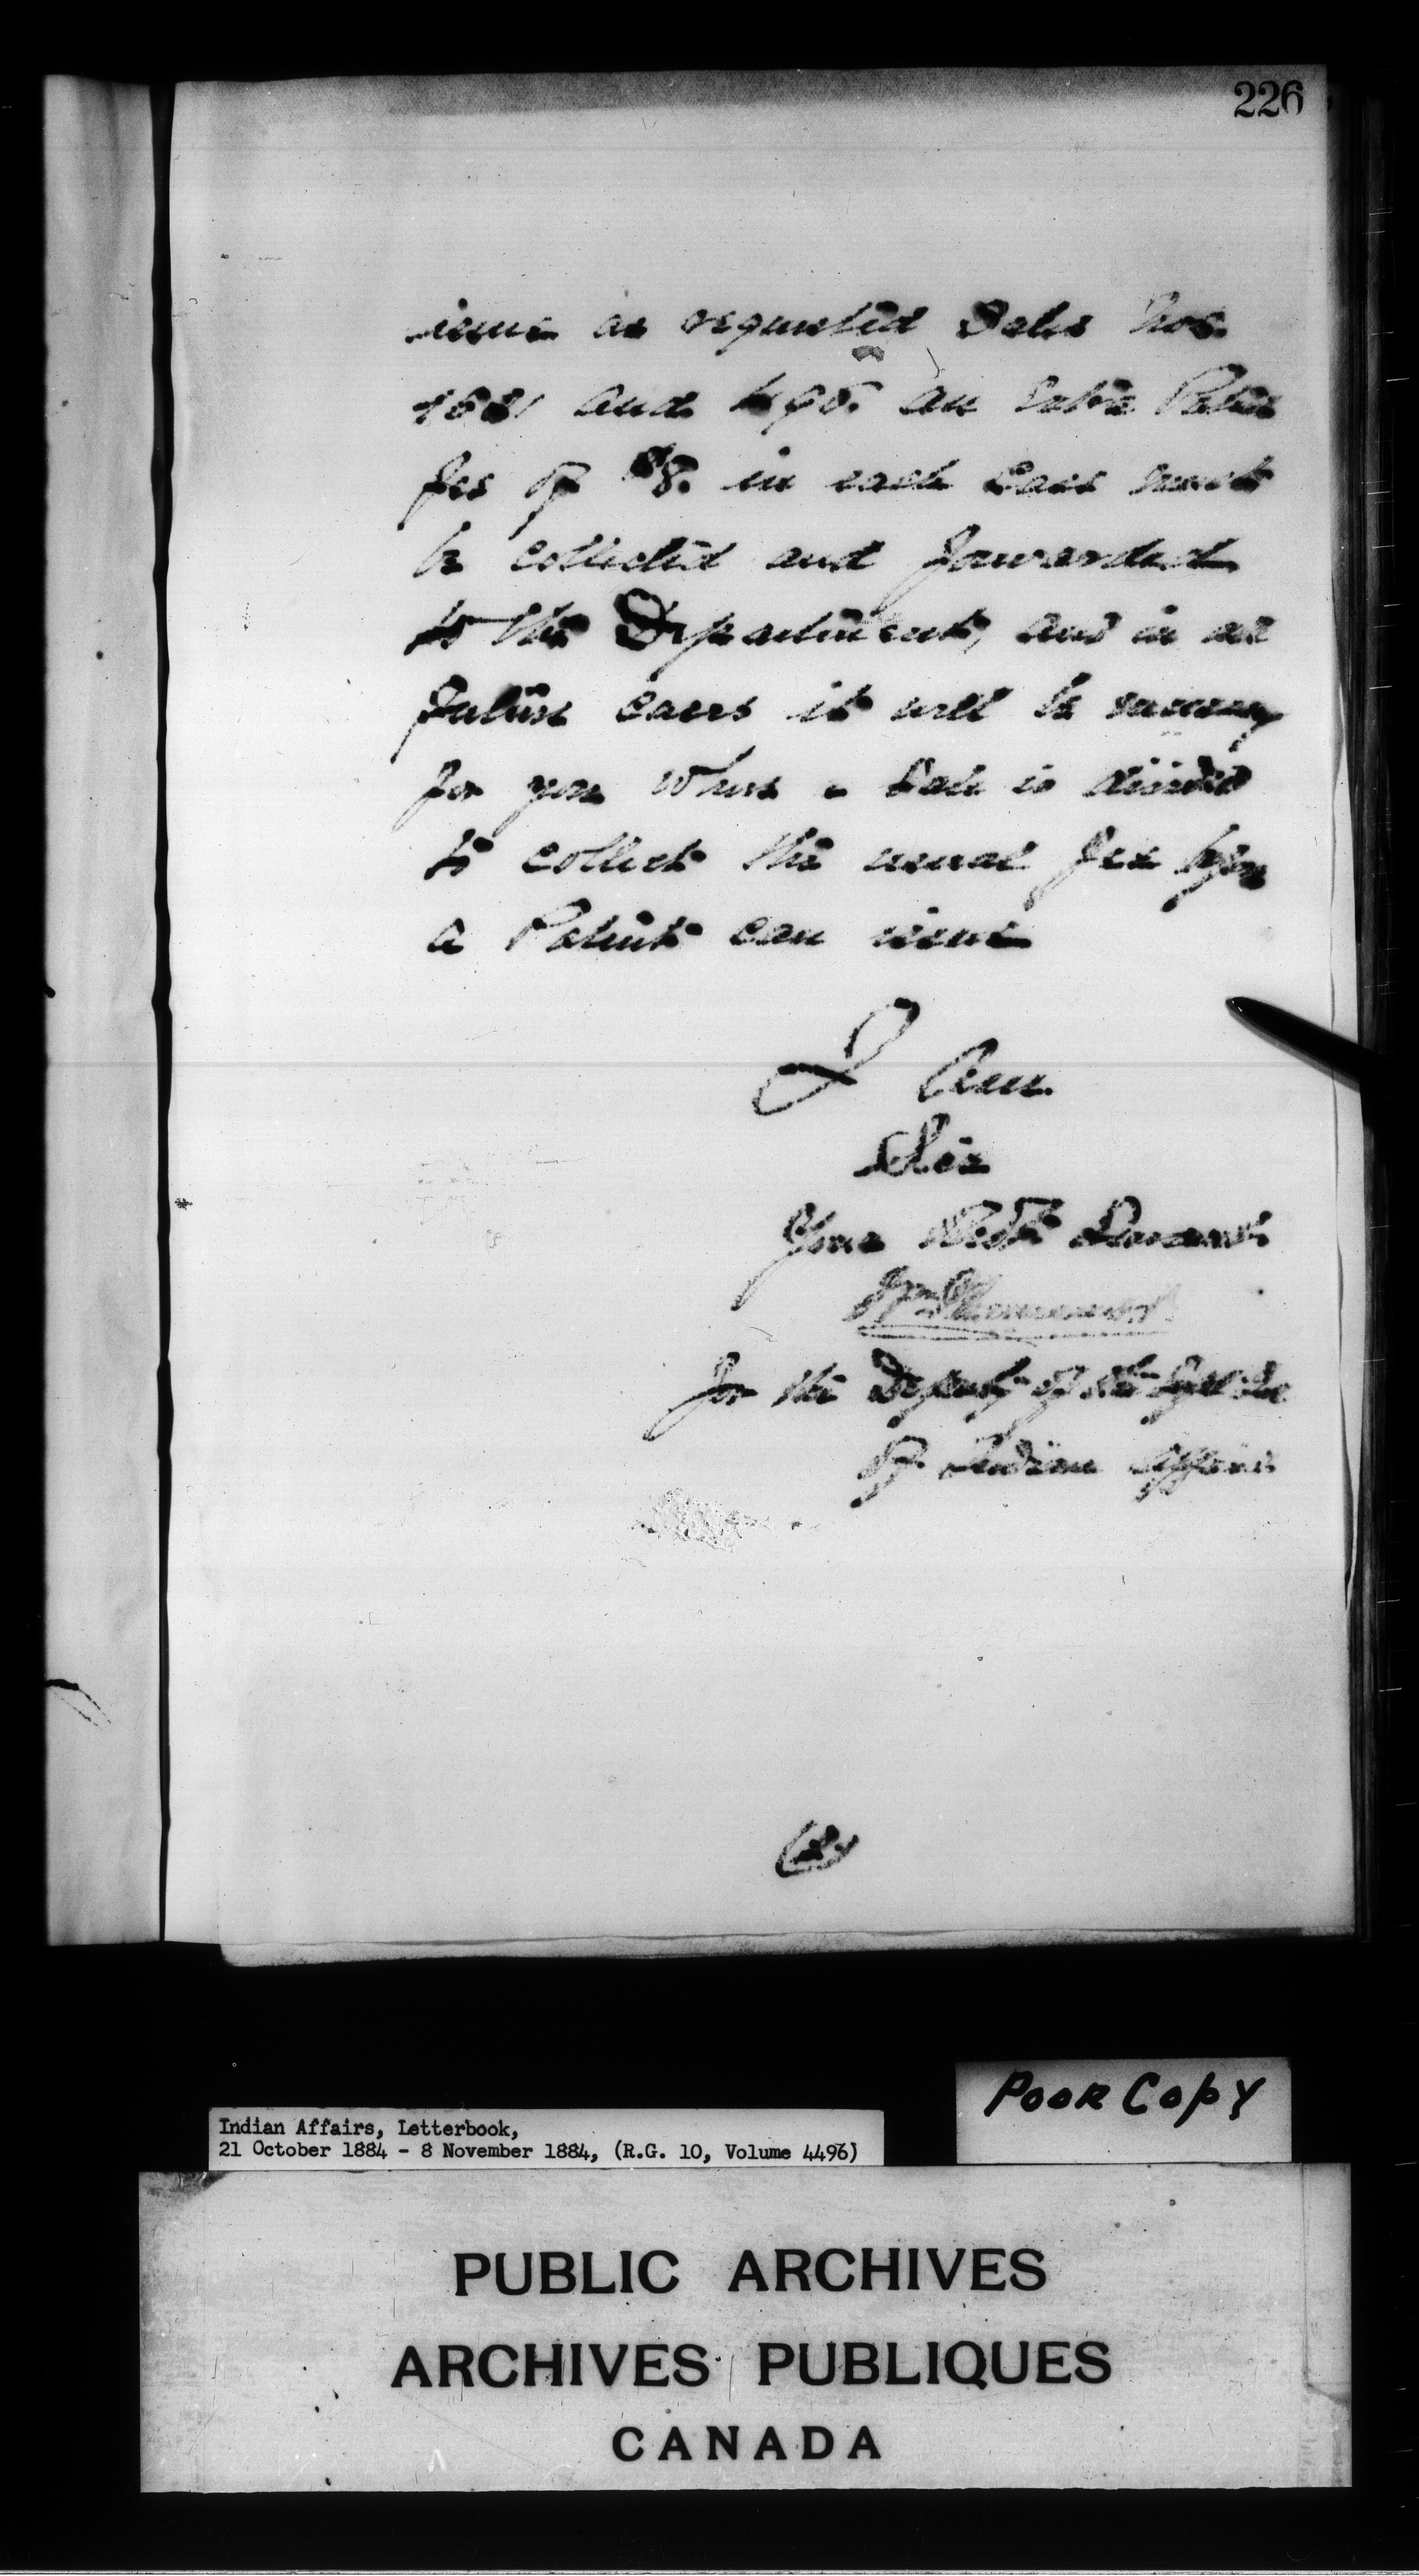 226
issue as requested Sales Nos.
and an extra Patent
fee of $8. in each case must
be collected and forwarded
to the Department, and in all
future cases it will be necessary
for you where a Sale is divided
to collect the usual fee before
a Patent can issue
I am.
Sir
Your Obdt Servant
for the Deputy of the Supt Genl
of Indian Affairs
(2)
Poor Copy
Indian Affairs, Letterbook,
21 October 1884 - 8 November 1884, (R.G. 10, Volume 4496)
PUBLIC ARCHIVES
ARCHIVES PUBLIQUES
CANADA